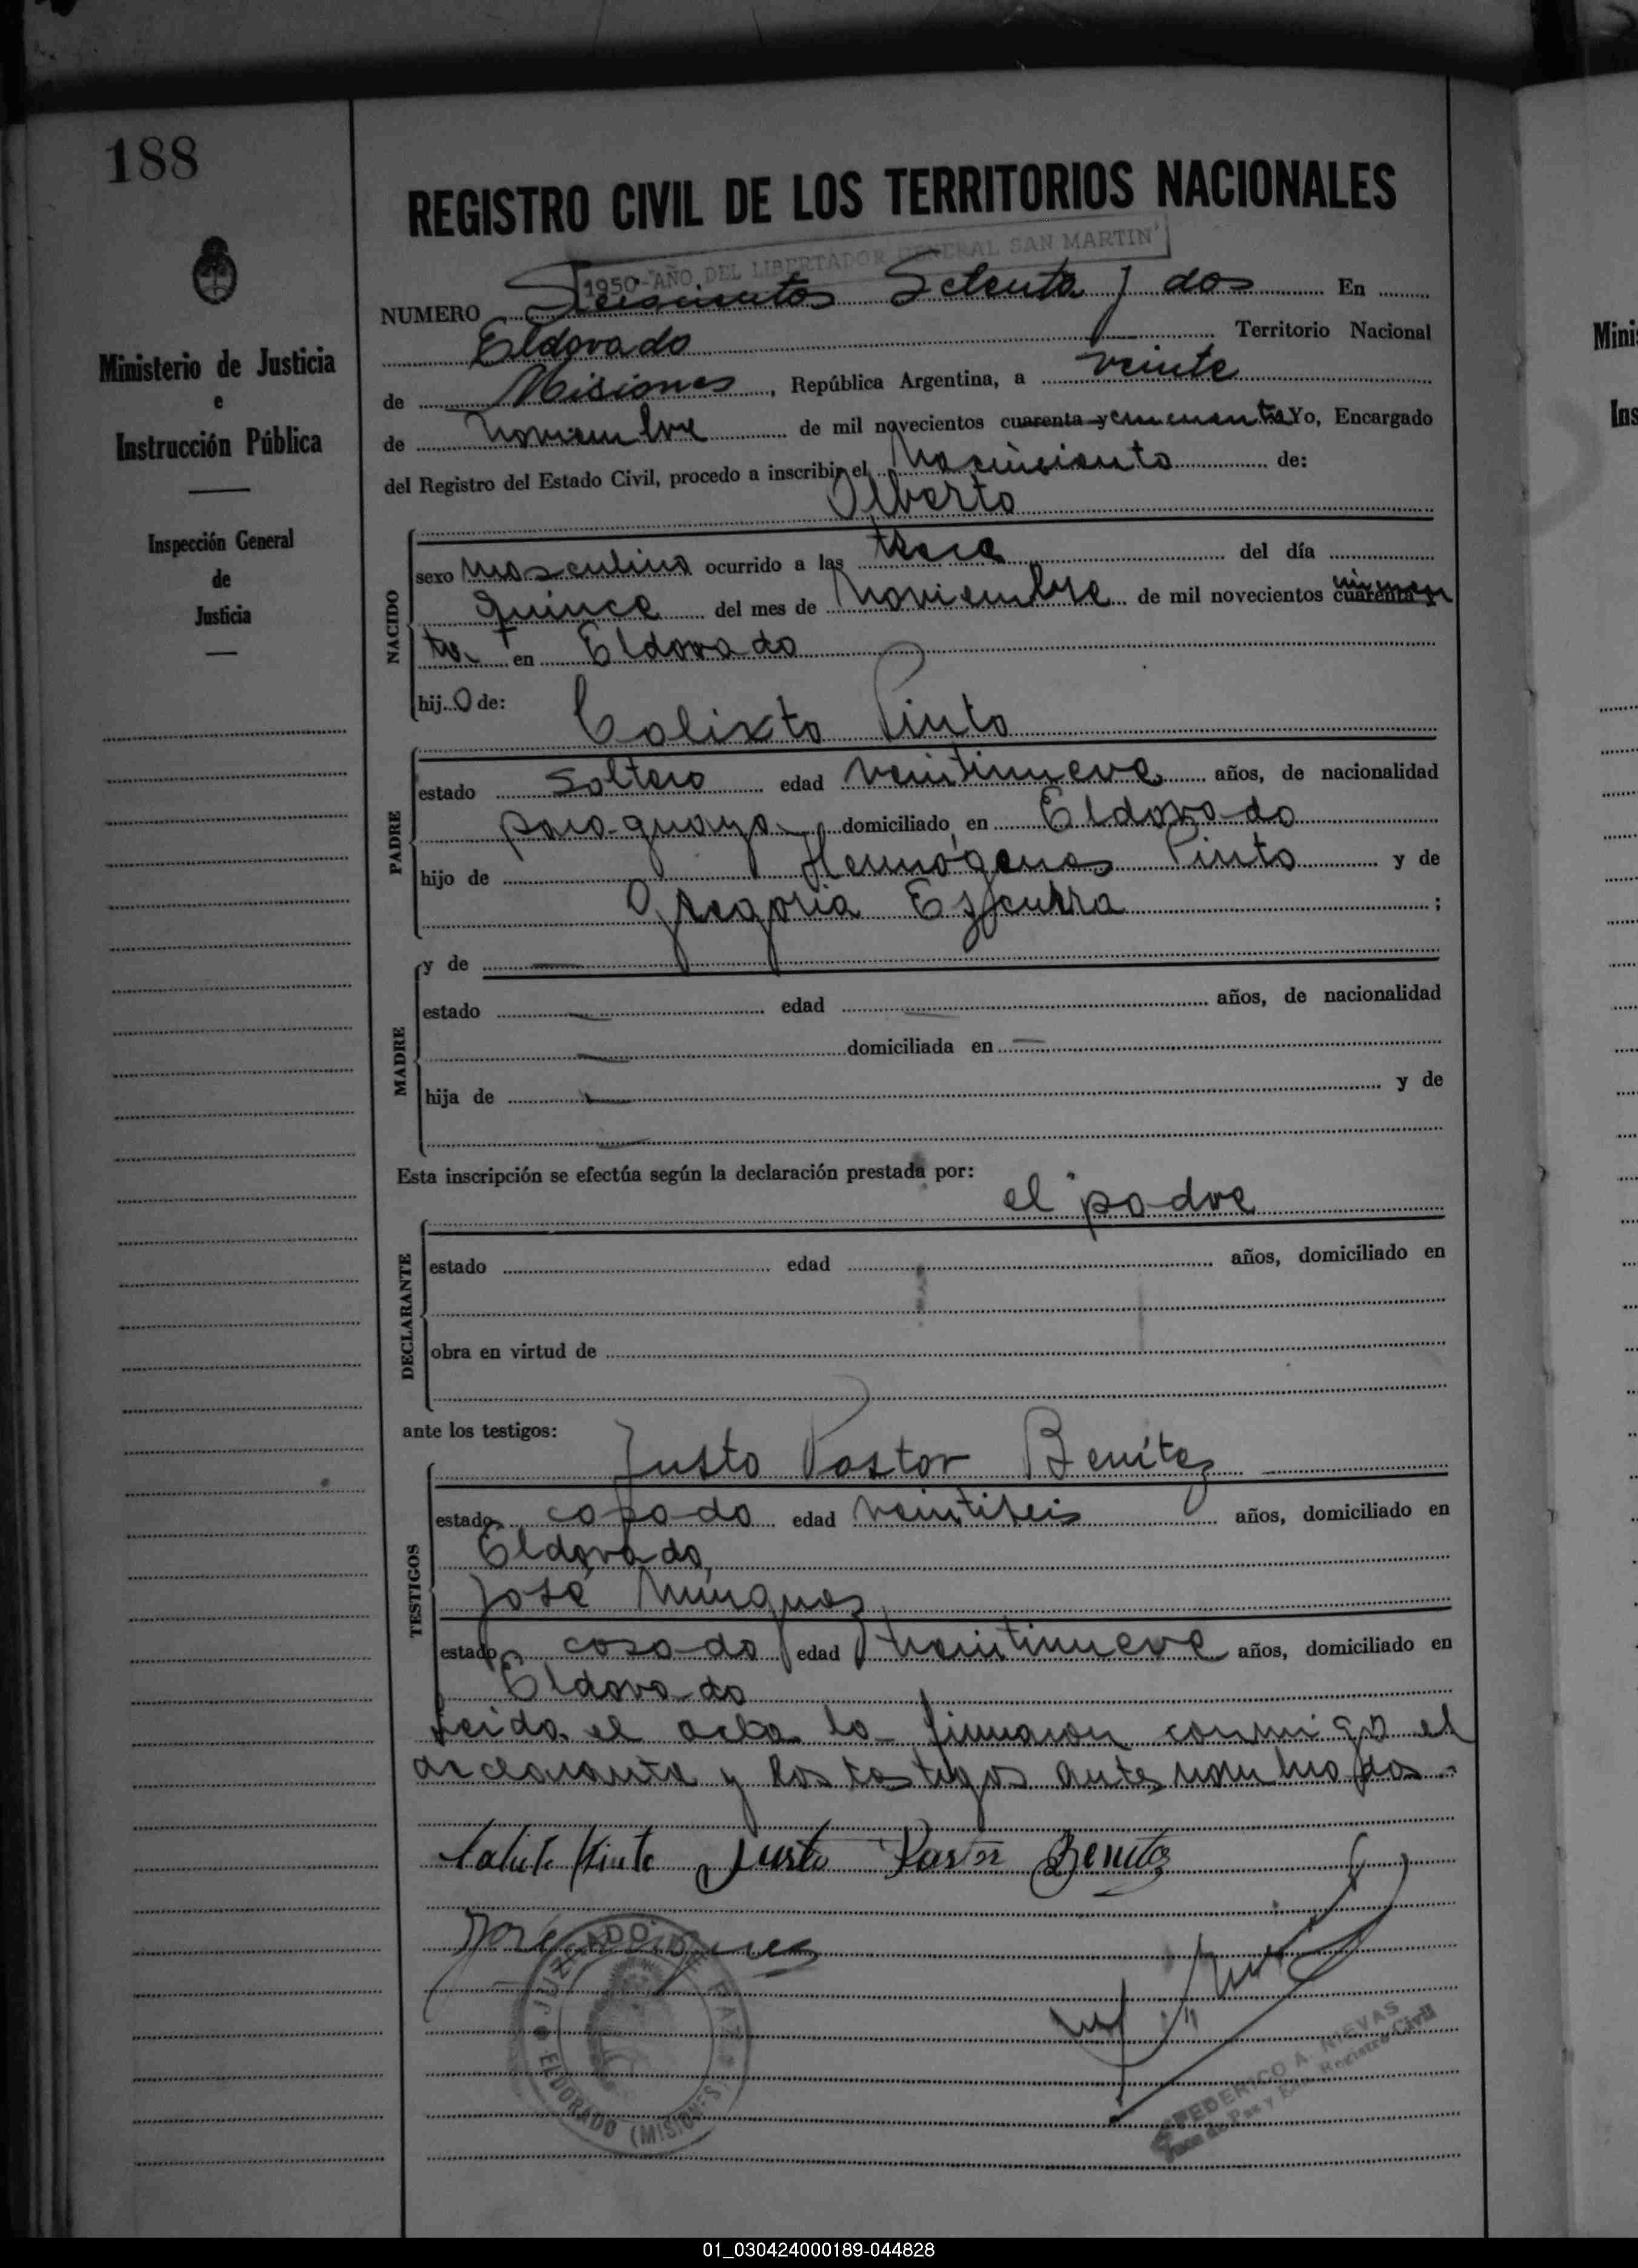 188
REGISTRO CIVIL DE LOS TERRITORIOS NACIONALES
1950-"AÑO DEL LIBERTADOR GENERAL SAN MARTIN"
NUMERO Seiscientos Setenta y dos En
Eldorado Territorio Nacional
de Misiones, República Argentina, a veinte
de noviembre de mil novecientos cuarenta y cincuenta Yo, Encargado
del Registro del Estado Civil, procedo a inscribir el Nacimiento de:
Alberto
Ministerio de Justicia
e
Instrucción Pública
Inspección General
de
Justicia
NACIDO
sexo masculino ocurrido a las trece del día
quince del mes de noviembre de mil novecientos cuarenta cincuen
ta en Eldorado
hijo de: Calixto Pinto
PADRE
estado soltero edad veintinueve años, de nacionalidad
paraguaya domiciliado en Eldorado
hijo de Hermógenes Pinto y de
Gregoria Ezcurra ;
MADRE
y de —
estado — edad — años, de nacionalidad
— domiciliada en —
hija de — y de
—
Esta inscripción se efectúa según la declaración prestada por:
el padre
DECLARANTE
estado edad años, domiciliado en
obra en virtud de
ante los testigos:
Justo Pastor Benítez
TESTIGOS
estado casado edad veintiseis años, domiciliado en
Eldorado
José Minguez
estado casado edad treintinueve años, domiciliado en
Eldorado
Leida el acta la firmaron conmigo el
declarante y los testigos antes nombrados.-
Calixto Pinto Justo Pastor Benitez
José
JUZGADO DE PAZ
ELDORADO (MISIONES)
FEDERICO A. NIEVAS
Juez de Paz y Enc. Registro Civil
Mini
Ins
01_030424000189-044828